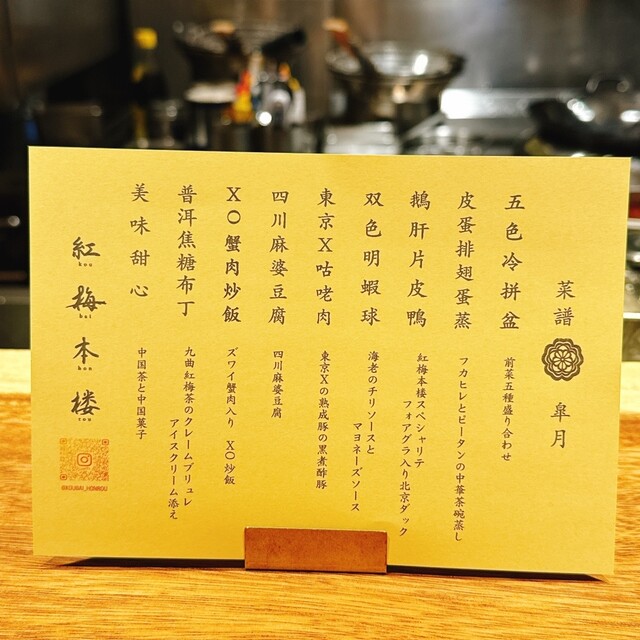 菜譜
皐月
五色冷拼盆
前菜五種盛り合わせ
皮蛋排翅蛋蒸
フカヒレとピータンの中華茶碗蒸し
鵝肝片皮鴨
紅梅本楼スペシャリテ
フォアグラ入り北京ダック
双色明蝦球
海老のチリソースと
マヨネーズソース
東京X咕咾肉
東京Xの熟成豚の黒煮酢豚
四川麻婆豆腐
四川麻婆豆腐
XO蟹肉炒飯
ズワイ蟹肉入り XO炒飯
普洱焦糖布丁
九曲紅梅茶のクレームブリュレ
アイスクリーム添え
美味甜心
中国茶と中国菓子
紅 kou
梅 bai
本 hon
楼 rou